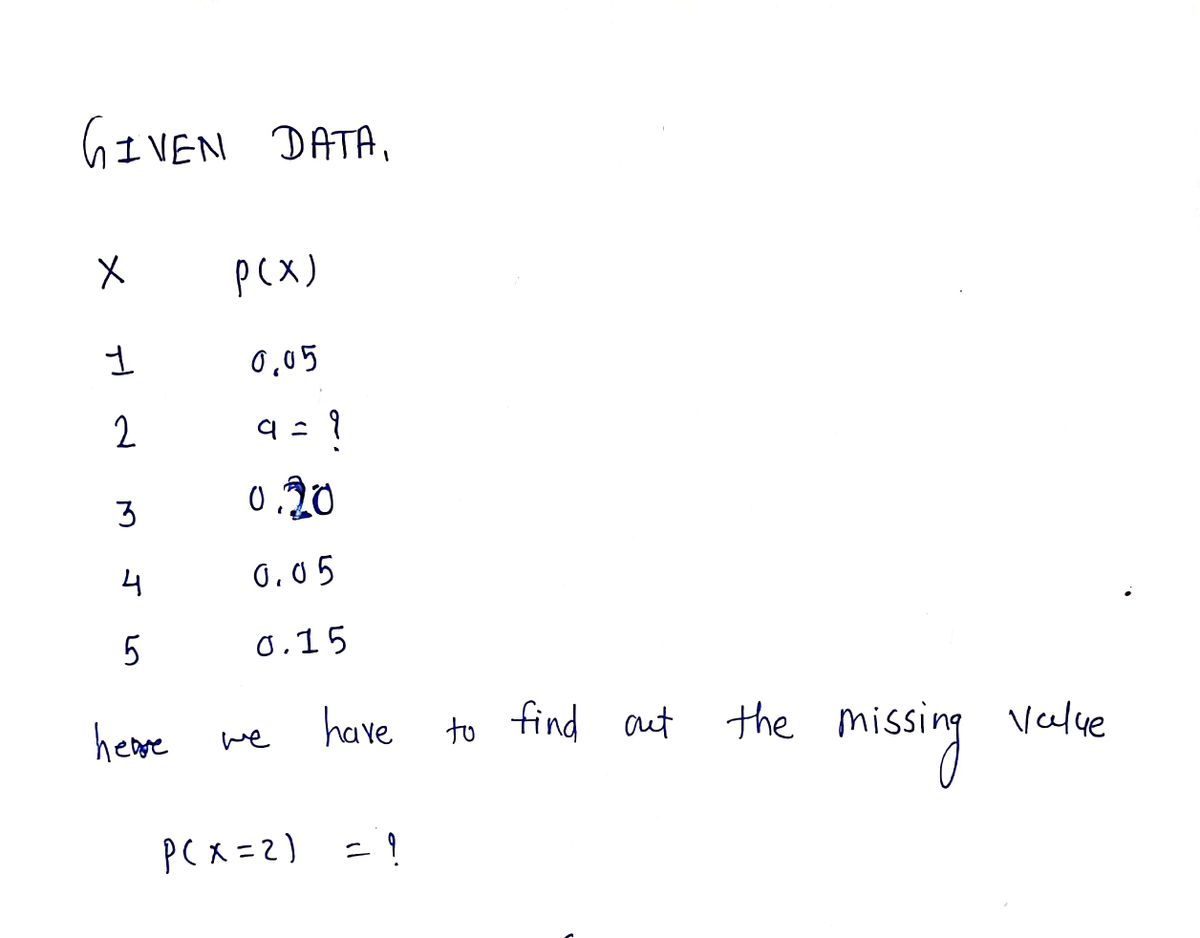 GIVEN DATA,
X P(X)
1 0.05
2 a = ?
3 0.20
4 0.05
5 0.15
here we have to find out the missing value
P(X=2) = ?